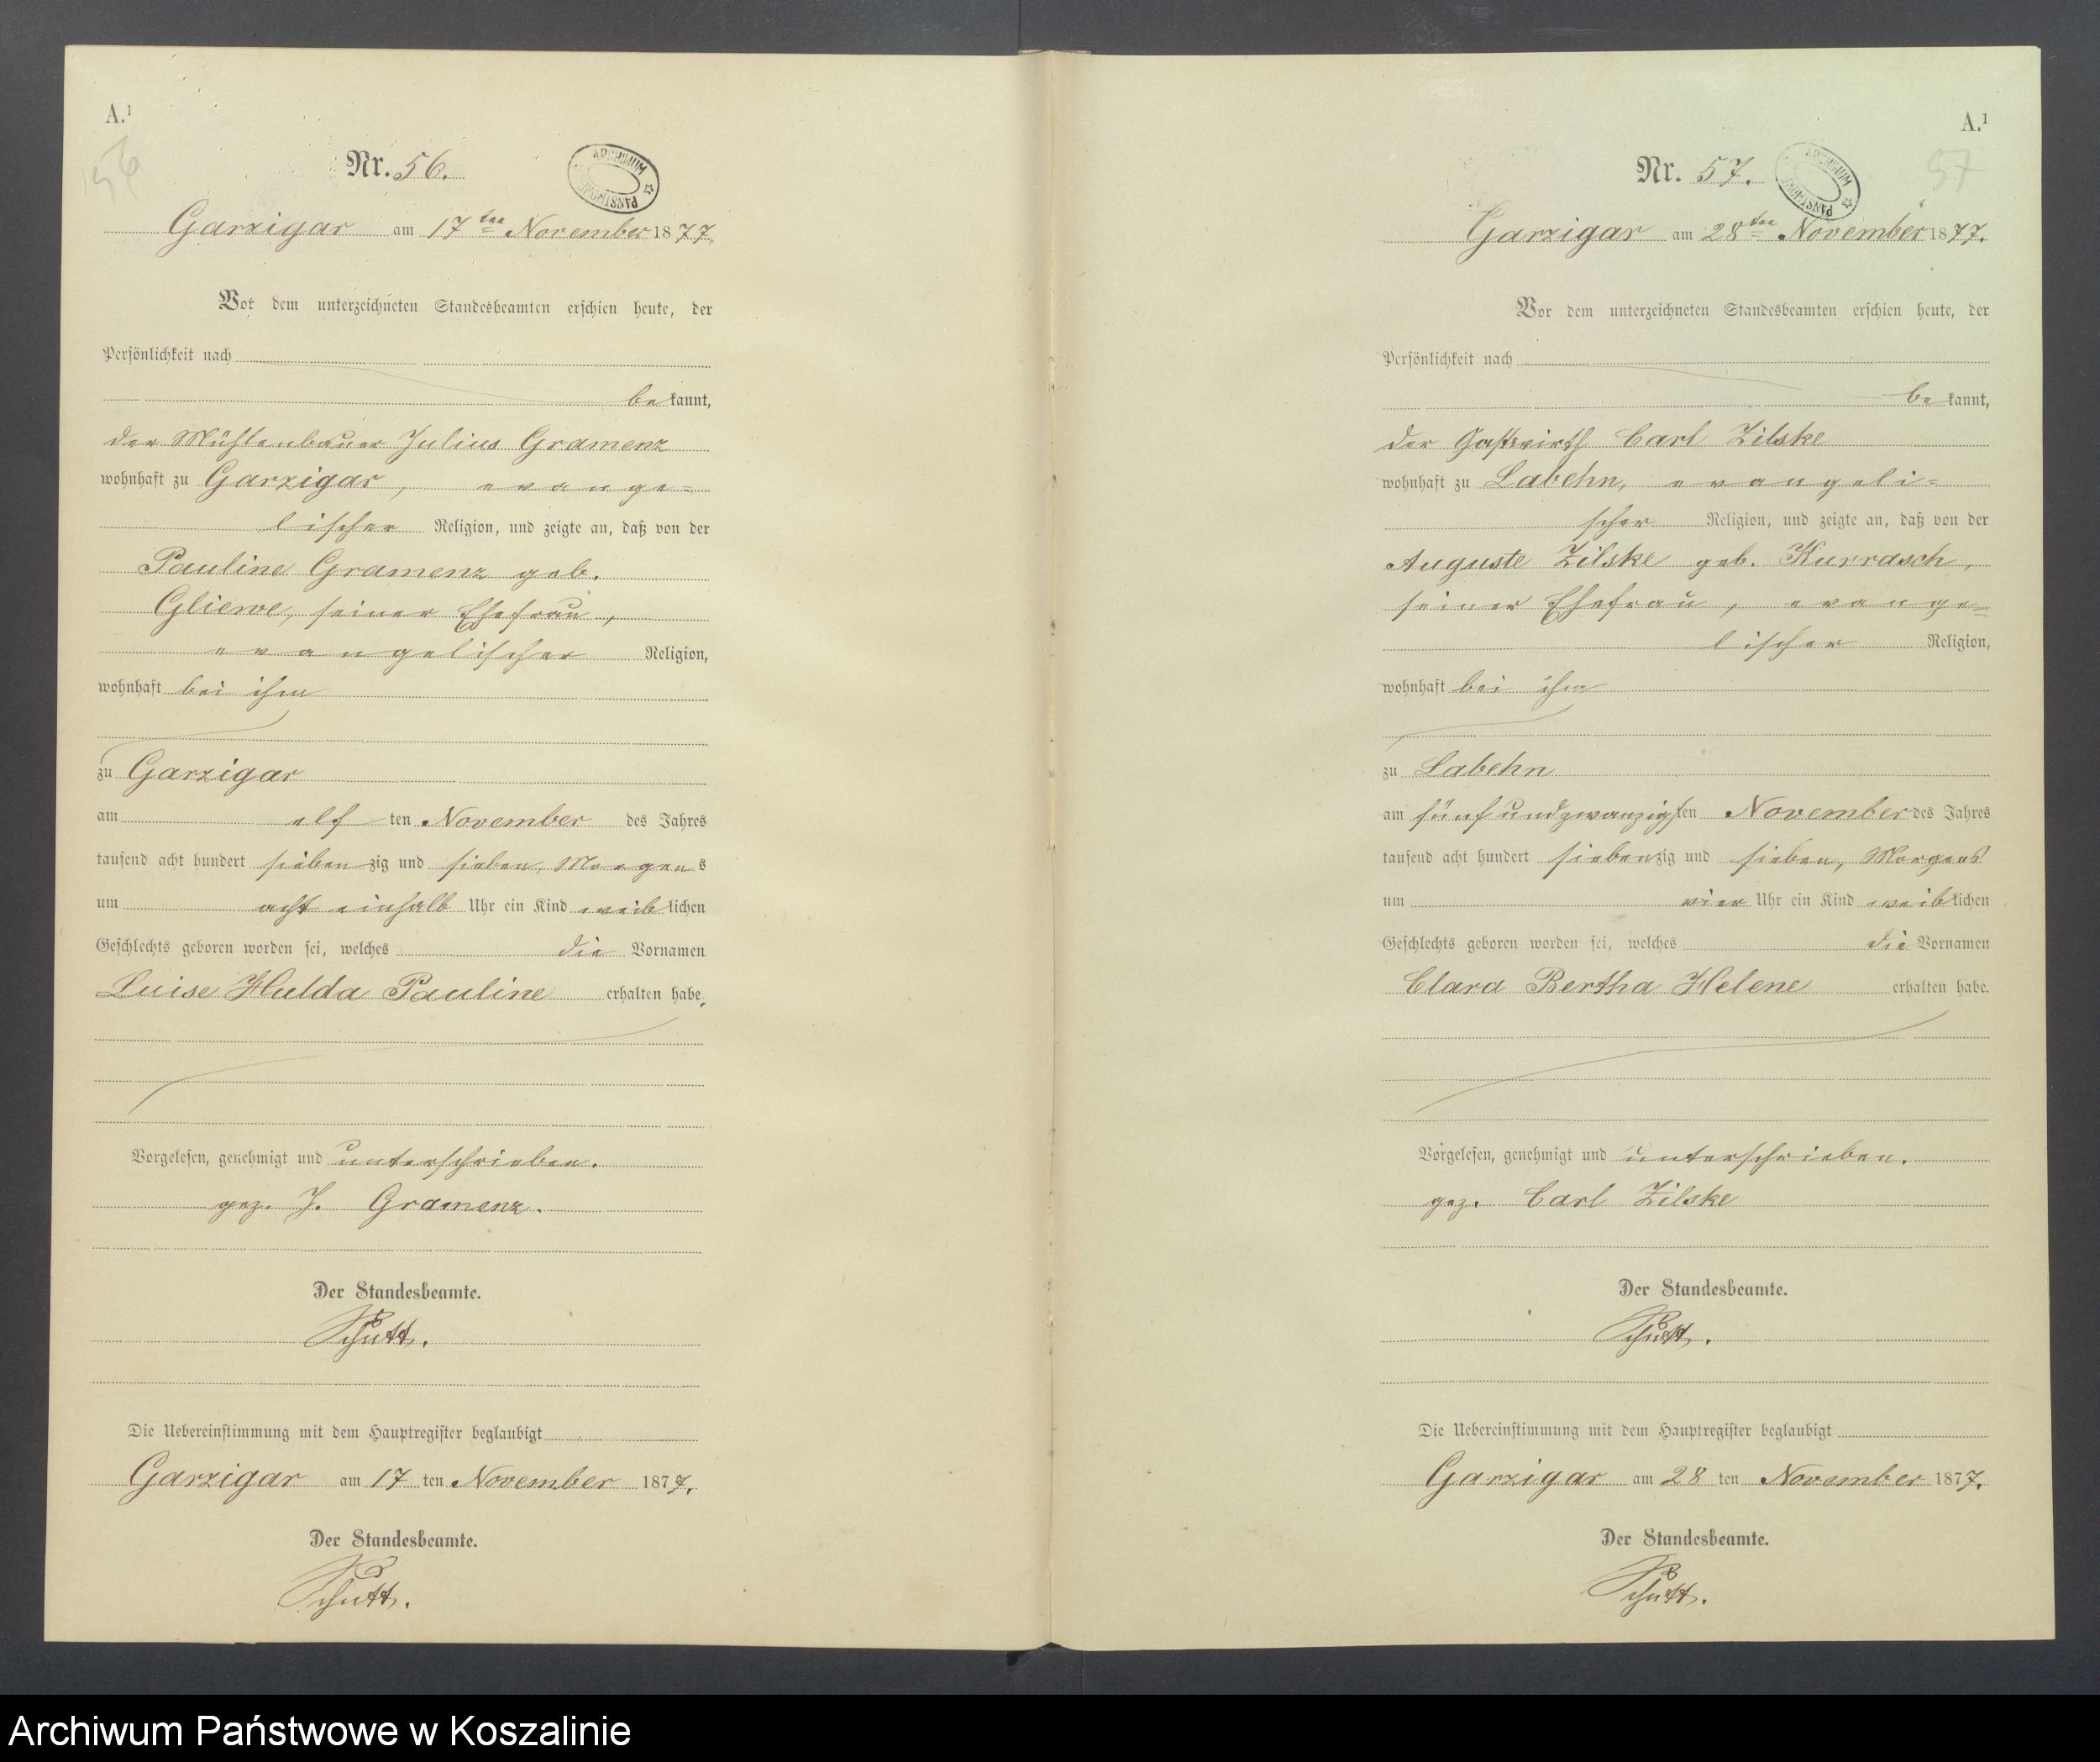 A.¹
56
Nr. 56.
ARCHIWUM PAŃSTWOWE
Garzigar am 17ten November 1877.
Vor dem unterzeichneten Standesbeamten erschien heute, der
Persönlichkeit nach
bekannt,
der Mühlenbauer Julius Gramenz
wohnhaft zu Garzigar, evange=
lischer Religion, und zeigte an, daß von der
Pauline Gramenz geb.
Gliewe, seiner Ehefrau,
evangelischer Religion,
wohnhaft bei ihm
zu Garzigar
am elften November des Jahres
tausend acht hundert siebenzig und sieben, Morgens
um acht einhalb Uhr ein Kind weiblichen
Geschlechts geboren worden sei, welches die Vornamen
Luise Hulda Pauline erhalten habe.
Vorgelesen, genehmigt und unterschrieben.
gez. J. Gramenz.
Der Standesbeamte.
Schutt.
Die Uebereinstimmung mit dem Hauptregister beglaubigt
Garzigar am 17ten November 1877.
Der Standesbeamte.
Schutt.
A.¹
57
Nr. 57.
ARCHIWUM PAŃSTWOWE
Garzigar am 28ten November 1877.
Vor dem unterzeichneten Standesbeamten erschien heute, der
Persönlichkeit nach
bekannt,
der Gastwirth Carl Zilske
wohnhaft zu Labehn, evangeli=
scher Religion, und zeigte an, daß von der
Auguste Zilske geb. Kurrasch,
seiner Ehefrau, evange=
lischer Religion,
wohnhaft bei ihm
zu Labehn
am fünfundzwanzigsten November des Jahres
tausend acht hundert siebenzig und sieben, Morgens
um vier Uhr ein Kind weiblichen
Geschlechts geboren worden sei, welches die Vornamen
Clara Bertha Helene erhalten habe.
Vorgelesen, genehmigt und unterschrieben.
gez. Carl Zilske
Der Standesbeamte.
Schutt.
Die Uebereinstimmung mit dem Hauptregister beglaubigt
Garzigar am 28ten November 1877.
Der Standesbeamte.
Schutt.
Archiwum Państwowe w Koszalinie